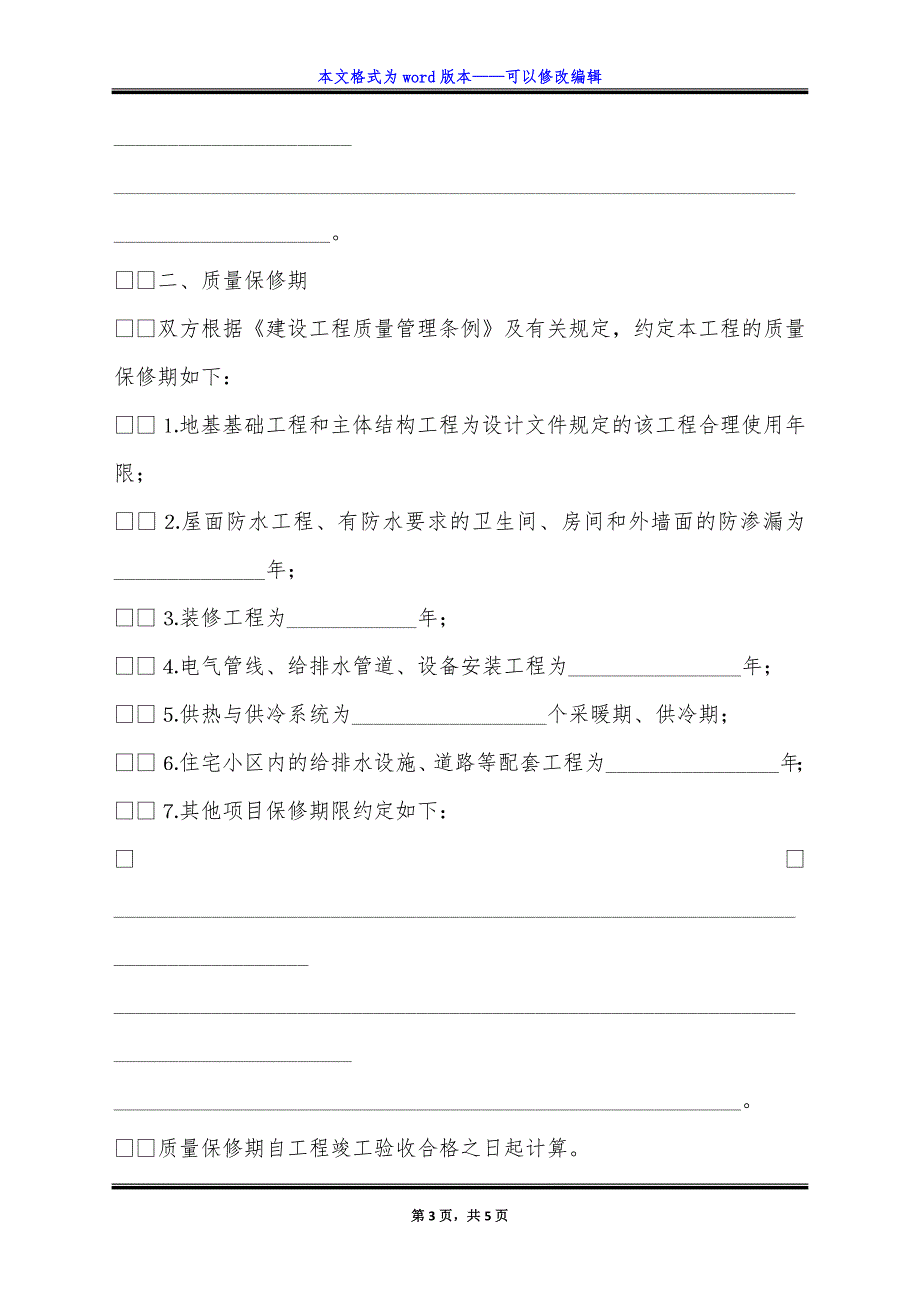 本文格式为 word 版本——可以修改编辑
______________________
_______________________________________________________________
____________________。
□□二、质量保修期
□□双方根据《建设工程质量管理条例》及有关规定，约定本工程的质量
保修期如下：
□□ 1.地基基础工程和主体结构工程为设计文件规定的该工程合理使用年
限；
□□ 2.屋面防水工程、有防水要求的卫生间、房间和外墙面的防渗漏为
______________年；
□□ 3.装修工程为____________年；
□□ 4.电气管线、给排水管道、设备安装工程为________________年；
□□ 5.供热与供冷系统为__________________个采暖期、供冷期；
□□ 6.住宅小区内的给排水设施、道路等配套工程为________________年；
□□ 7.其他项目保修期限约定如下：
□ □
_______________________________________________________________
__________________
_______________________________________________________________
______________________
__________________________________________________________。
□□质量保修期自工程竣工验收合格之日起计算。
第 3 页，共 5 页